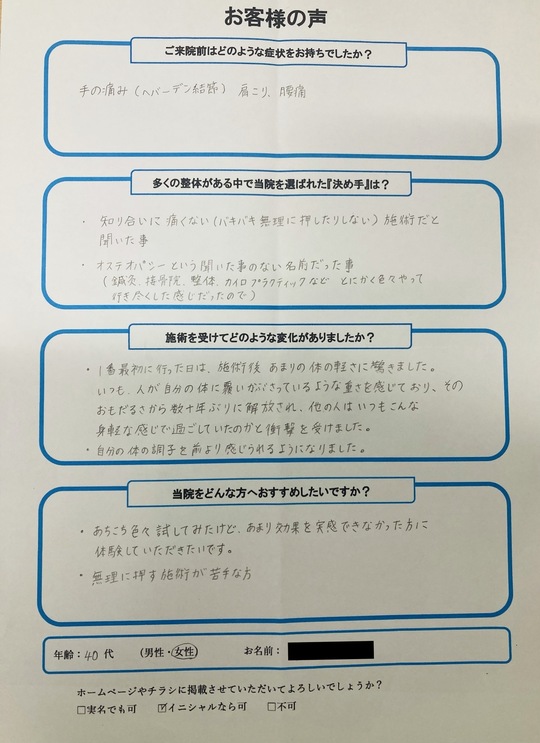 お客様の声
ご来院前はどのような症状をお持ちでしたか？
手の痛み（ヘバーデン結節） 肩こり、腰痛
多くの整体がある中で当院を選ばれた『決め手』は？
・知り合いに痛くない（バキバキ無理に押したりしない）施術だと
聞いた事
・オステオパシーという聞いた事のない名前だった事
（鍼灸、接骨院、整体、カイロプラクティックなど とにかく色々やって
行き尽くした感じだったので）
施術を受けてどのような変化がありましたか？
・1番最初に行った日は、施術後あまりの体の軽さに驚きました。
いつも、人が自分の体に覆いかぶさっているような重さを感じており、その
おもだるさから数十年ぶりに解放され、他の人はいつもこんな
身軽な感じで過ごしていたのかと衝撃を受けました。
・自分の体の調子を前より感じられるようになりました。
当院をどんな方へおすすめしたいですか？
・あちこち色々試してみたけど、あまり効果を実感できなかった方に
体験していただきたいです。
・無理に押す施術が苦手な方
年齢：40代 （男性・女性） お名前：
ホームページやチラシに掲載させていただいてよろしいでしょうか？
□実名でも可 ☑イニシャルなら可 □不可